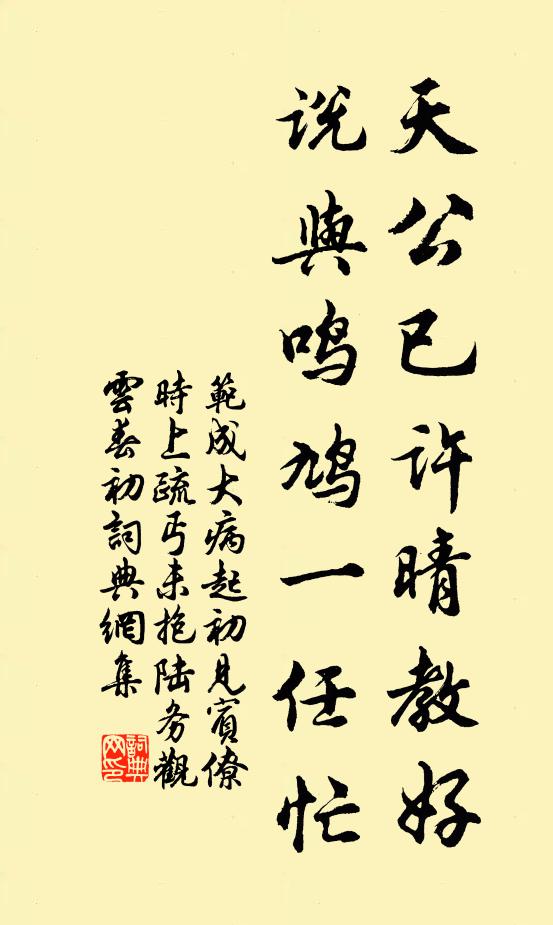 天公已许晴教好
说與鸣鸠一任忙
範成大病起初見賓僚
時上疏丐未抱陸务觀
雲春初詞典網集
詞典
网印